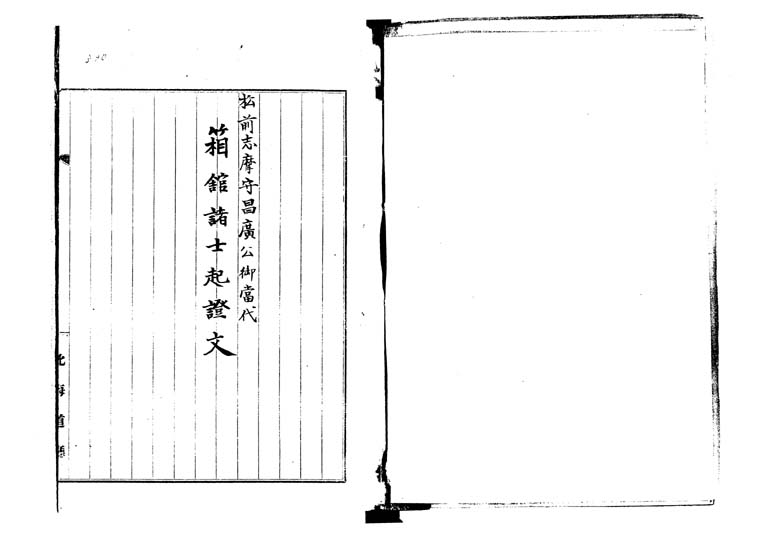 松前志摩守昌廣公御當代
箱舘諸士起證文
北海道